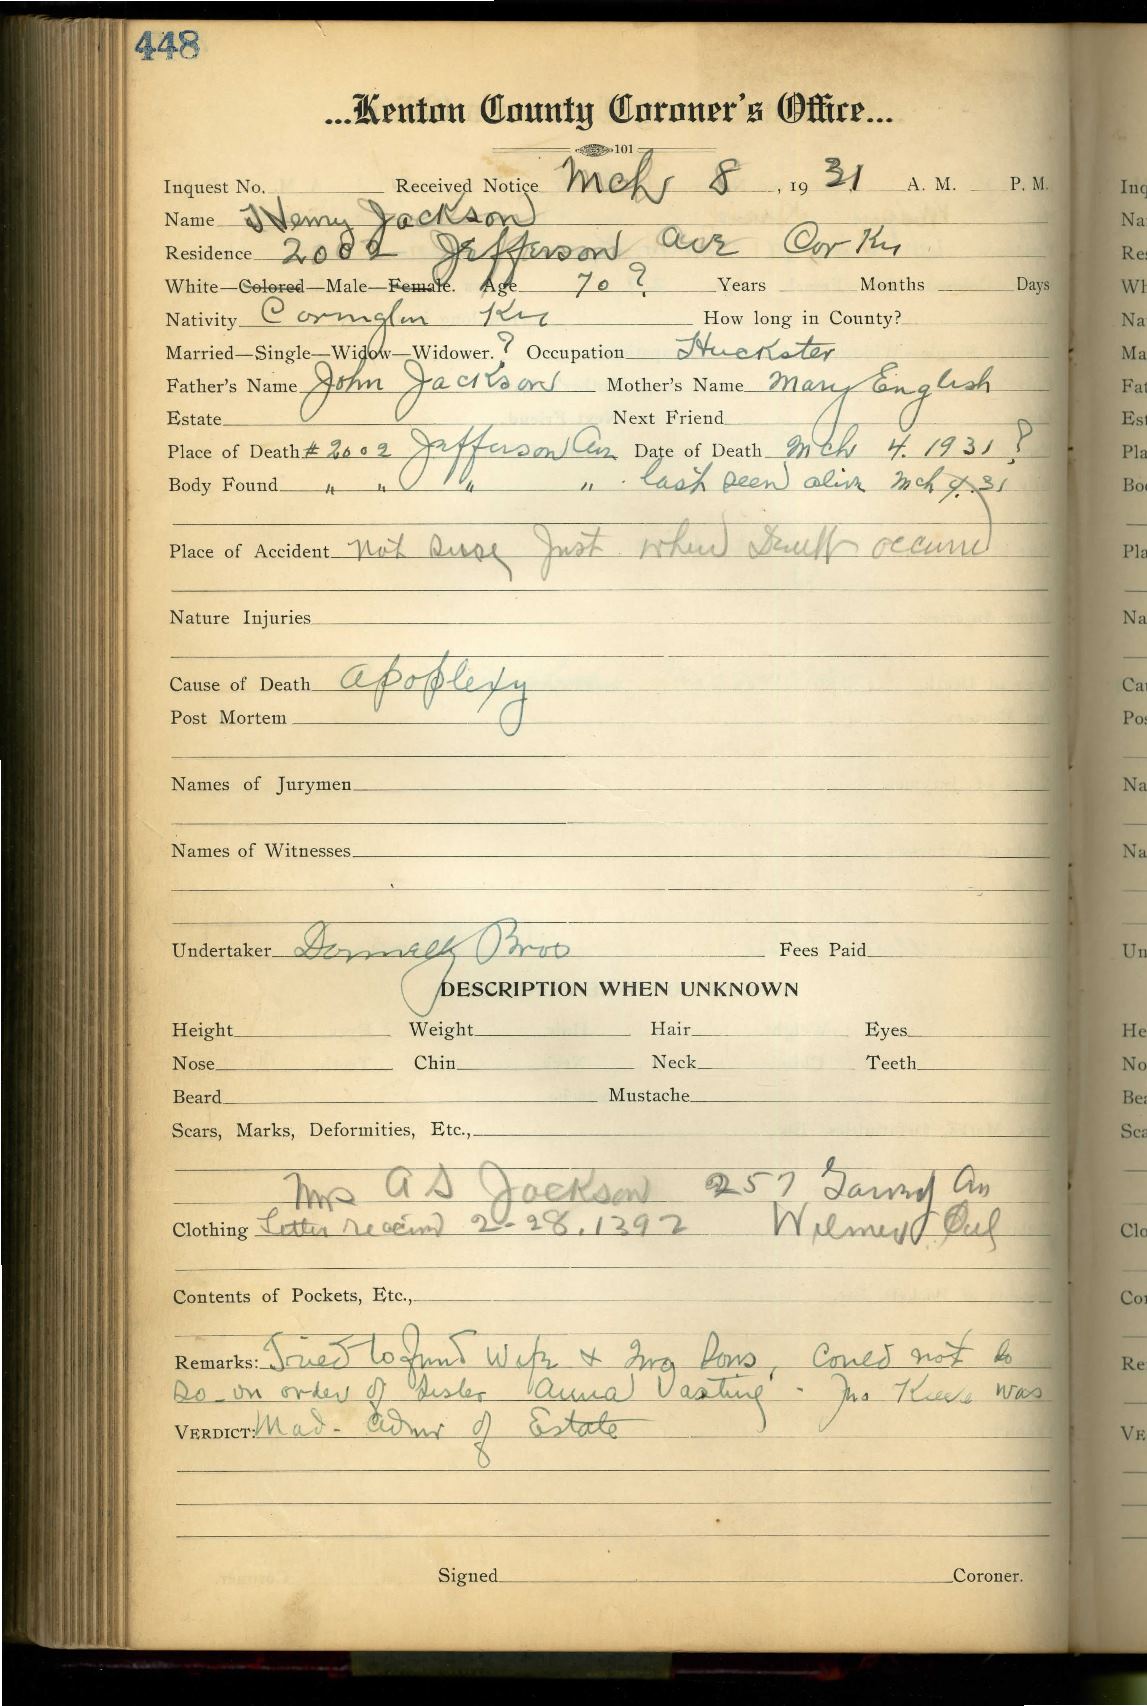 448
...Kenton County Coroner's Office...
101
Inquest No. Received Notice Mch 8, 1931 A. M. P. M.
Name Henry Jackson
Residence 2002 Jefferson Ave Cov Ky
White—Colored—Male—Female. Age 70? Years Months Days
Nativity Covington Ky How long in County?
Married—Single—Widow—Widower.? Occupation Huckster
Father's Name John Jackson Mother's Name Mary English
Estate Next Friend
Place of Death # 2002 Jefferson Av Date of Death Mch 4. 1931?
Body Found " " " " last seen alive Mch 4.31
Place of Accident not sure Just when Death occurred
Nature Injuries
Cause of Death apoplexy
Post Mortem
Names of Jurymen
Names of Witnesses
Undertaker Donnelly Bros Fees Paid
DESCRIPTION WHEN UNKNOWN
Height Weight Hair Eyes
Nose Chin Neck Teeth
Beard Mustache
Scars, Marks, Deformities, Etc.,
Mrs A S Jackson 257
Clothing Letter received 2-28.1392
Contents of Pockets, Etc.,
Remarks: Tried to find Wife & two Sons, Could not do
so - on order of sister Anna Vasting - Jno was
VERDICT: Mad- Admr of Estate
Signed Coroner.
Ing
Na
Re
Wh
Na
Ma
Fat
Est
Pla
Bo
Pla
Na
Ca
Pos
Na
Na
Un
He
No
Bea
Sca
Clo
Co
Re
VE